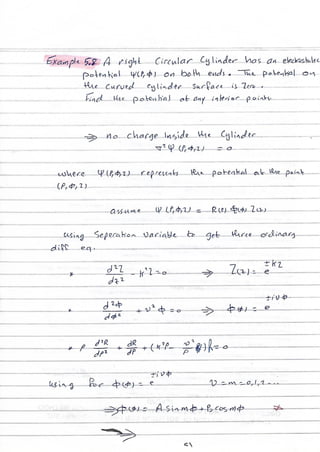 Example 5.8 A right Circular Cylinder has an electrostatic
potential Ψ(ρ,φ) on both ends. The potential on
the curved cylinder surface is Zero.
Find the potential at any interior point.
⇒ no charge Inside the Cylinder
∇²Ψ(ρ,φ,z) = 0
where Ψ(ρ,φ,z) represents the potential at the point
(ρ,φ,z)
assume Ψ(ρ,φ,z) = R(ρ) Φ(φ) Z(z)
using Seperation variable to get three ordinary
diff eq.
* d²Z/dz² - k²Z = 0 ⇒ Z(z) = e^{±kz}
* d²Φ/dφ² + ν²Φ = 0 ⇒ Φ(φ) = e^{±iνφ}
* ρ d²R/dρ² + dR/dρ + (k²ρ - ν²/ρ)R = 0
using for Φ(φ) = e^{±iνφ} ν = m = 0,1,2 ...
⇒ Φ(φ) = A sin mφ + B cos mφ *